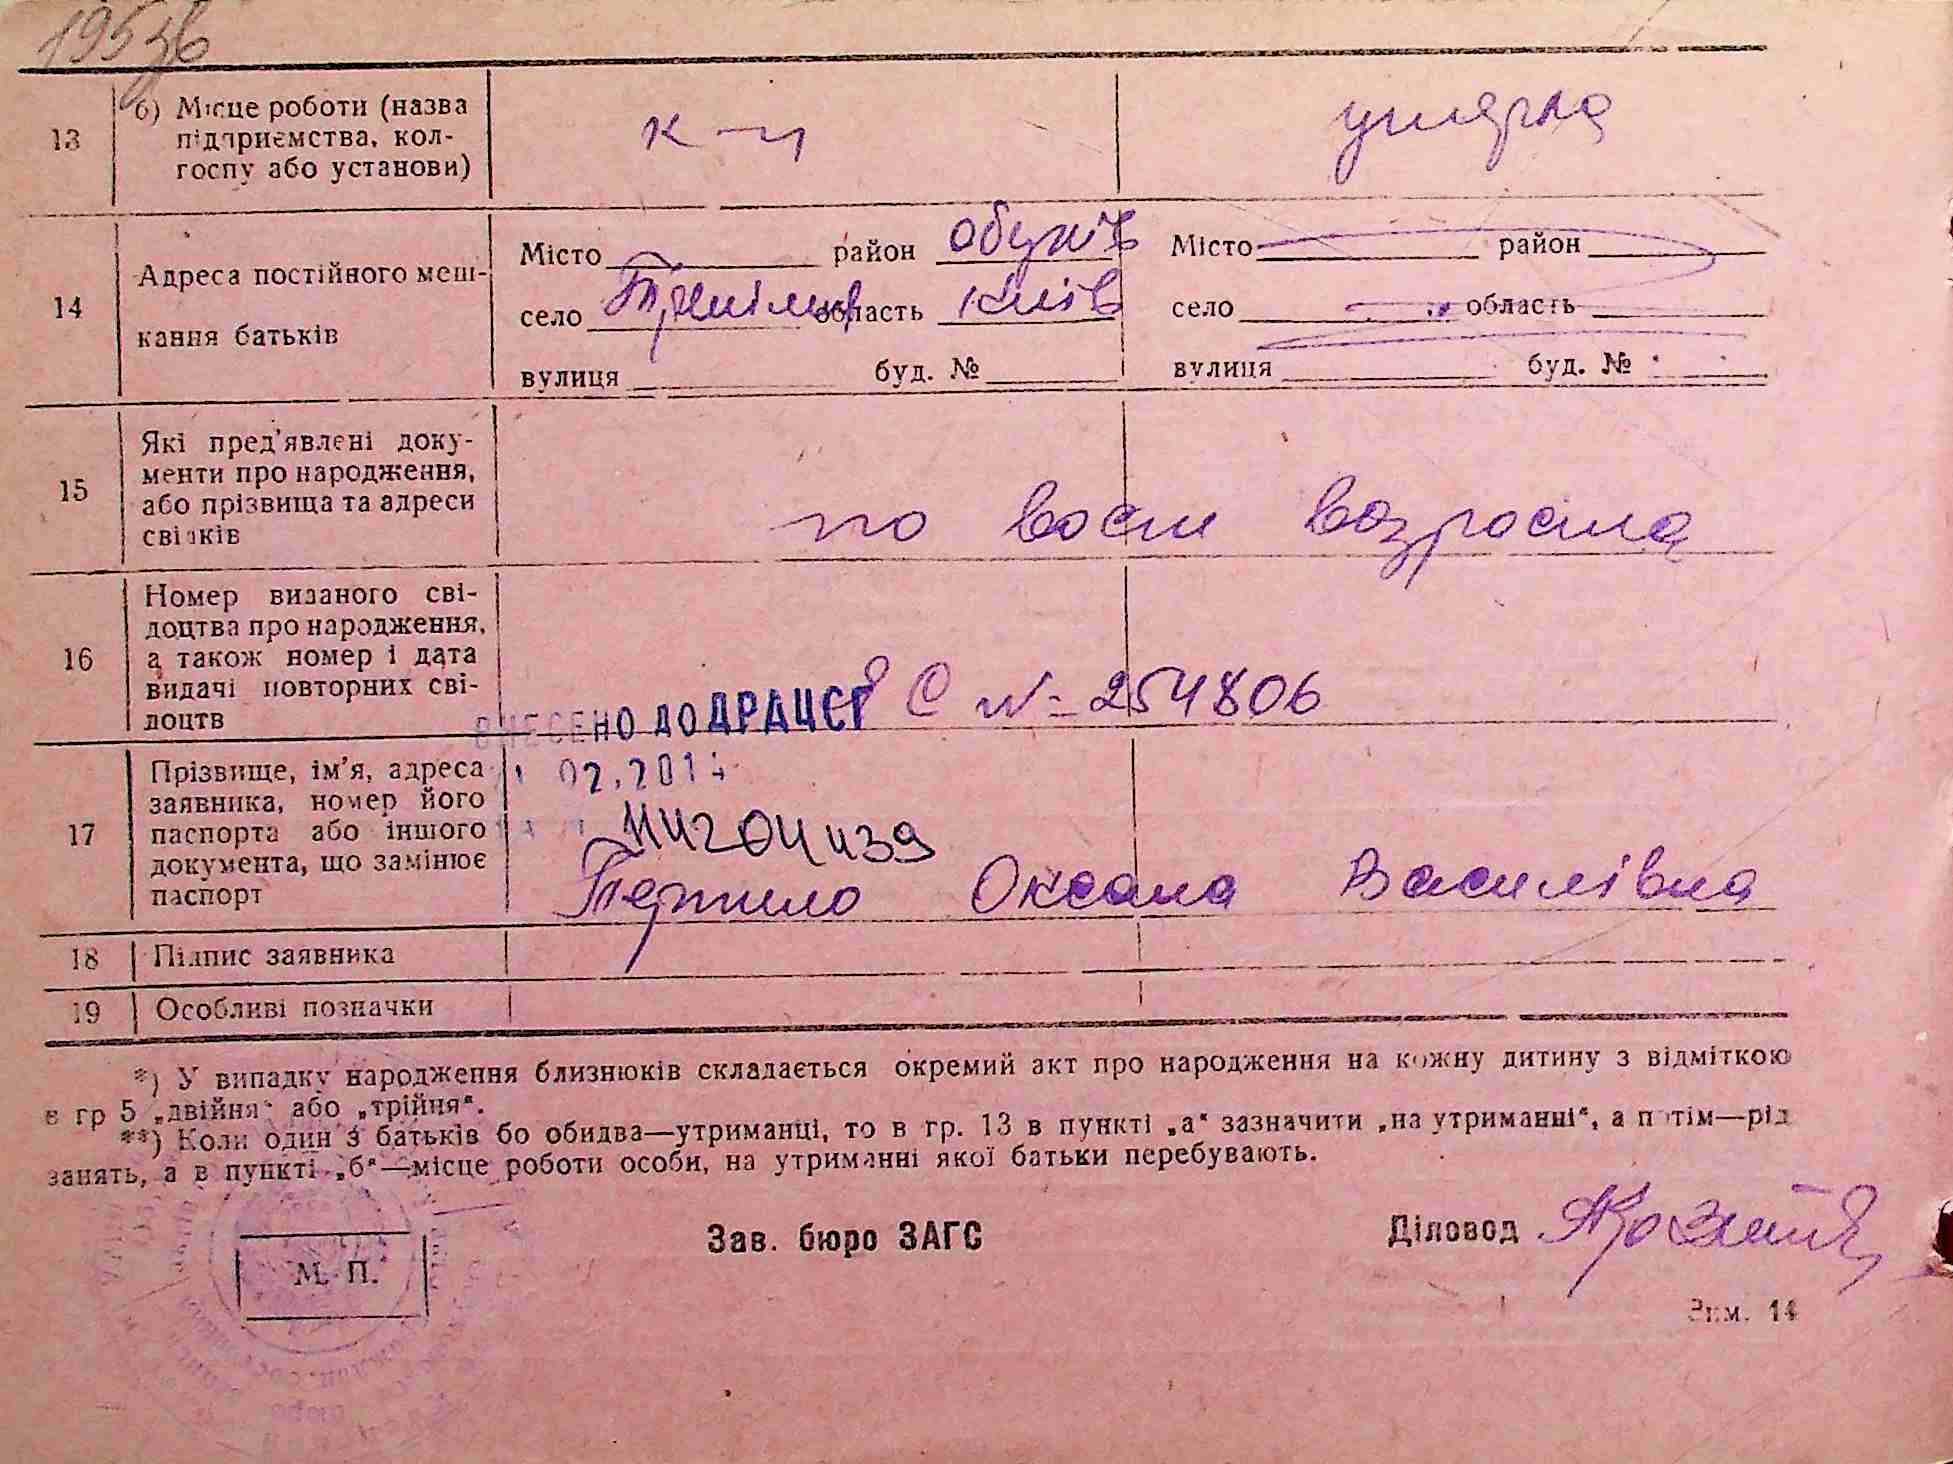 13
б) Місце роботи (назва
підприємства, кол-
госпу або установи)
14
Адреса постійного меш-
кання батьків
Місто район Обухів
село Трипілля область Київ
вулиця буд. №
Місто район
село область
вулиця буд. №
15
Які пред'явлені доку-
менти про народження,
або прізвища та адреси
свідків
по восст возраста
16
Номер виданого сві-
доцтва про народження,
а також номер і дата
видачі повторних сві-
доцтв
С № 254806
ВНЕСЕНО ДО ДРАЦСГ
02.201
17
Прізвище, ім'я, адреса
заявника, номер його
паспорта або іншого
документа, що замінює
паспорт
Оксана Василівна
18 Підпис заявника
19 Особливі позначки
*) У випадку народження близнюків складається окремий акт про народження на кожну дитину з відміткою
в гр 5 „двійня“ або „трійня“.
**) Коли один з батьків бо обидва—утриманці, то в гр. 13 в пункті „а“ зазначити „на утриманні“, а потім—рід
занять, а в пункті „б“—місце роботи особи, на утриманні якої батьки перебувають.
М. П.
Зав. бюро ЗАГС
Діловод
Зам. 14